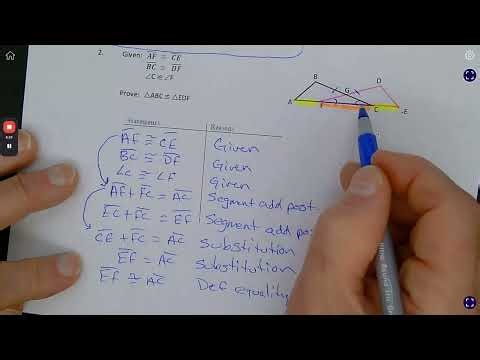 2.
Given: AF ≅ CE
BC ≅ DF
∠C ≅ ∠F
Prove: △ABC ≅ △EDF
B
D
G
A
F
C
E
Statements
Reasons
AF ≅ CE Given
BC ≅ DF Given
∠C ≅ ∠F Given
AF + FC = AC Segment add post
EC + FC = EF Segment add pos
CE + FC = AC Substitution
EF = AC Substitution
EF ≅ AC Def equality